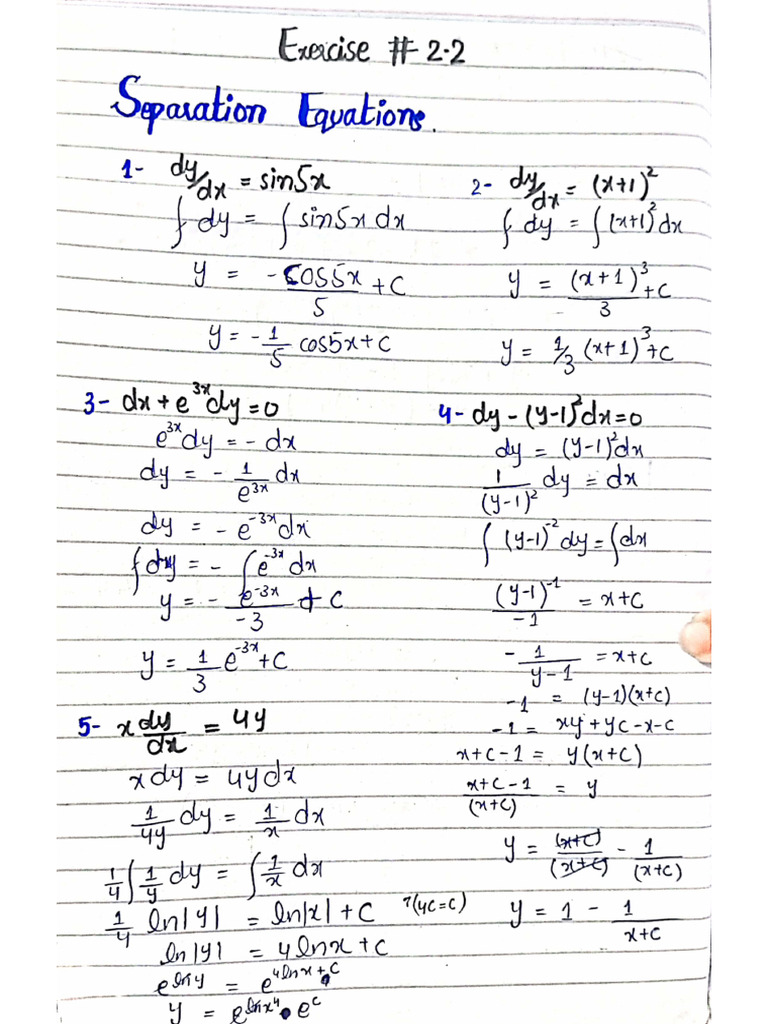 Exercise # 2.2
Separation Equations.
1- dy/dx = sin5x
∫dy = ∫sin5x dx
y = -cos5x/5 + C
y = -1/5 cos5x + C
2- dy/dx = (x+1)²
∫dy = ∫(x+1)²dx
y = (x+1)³/3 + C
y = 1/3 (x+1)³ + C
3- dx + e³ˣdy = 0
e³ˣdy = - dx
dy = - 1/e³ˣ dx
dy = - e⁻³ˣdx
∫dy = - ∫e⁻³ˣdx
y = - e⁻³ˣ/-3 + C
y = 1/3 e⁻³ˣ + C
4- dy - (y-1)²dx = 0
dy = (y-1)²dx
1/(y-1)² dy = dx
∫(y-1)⁻²dy = ∫dx
(y-1)⁻¹/-1 = x+C
- 1/y-1 = x+C
-1 = (y-1)(x+C)
-1 = xy+yC-x-C
x+C-1 = y(x+C)
x+C-1/(x+C) = y
y = (x+C)/(x+C) - 1/(x+C)
y = 1 - 1/x+C
5- x dy/dx = 4y
xdy = 4ydx
1/4y dy = 1/x dx
1/4 ∫1/y dy = ∫1/x dx
1/4 ln|y| = ln|x| + C ⁊(4C=C)
ln|y| = 4lnx + C
e^lny = e^4lnx+C
y = e^lnx⁴ • e^C